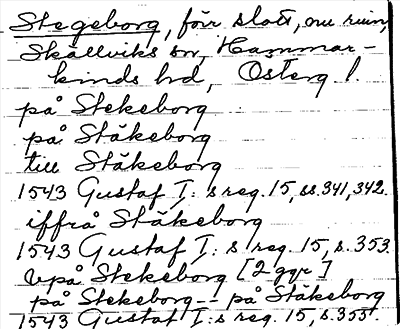 Stegeborg, förr slott, nu ruin,
Skällviks sn, Hammar-
kinds hd, Österg. l.
på Stekeborg
på Stäkeborg
till Stäkeborg
1543 Gustaf I:s reg. 15, ss. 341, 342.
iffrå Stäkeborg
1543 Gustaf I:s reg. 15, s. 353.
vpå Stekeborg [2 ggr]
på Stekeborg -- på Stäkeborg
1543 Gustaf I:s reg. 15, s. 355